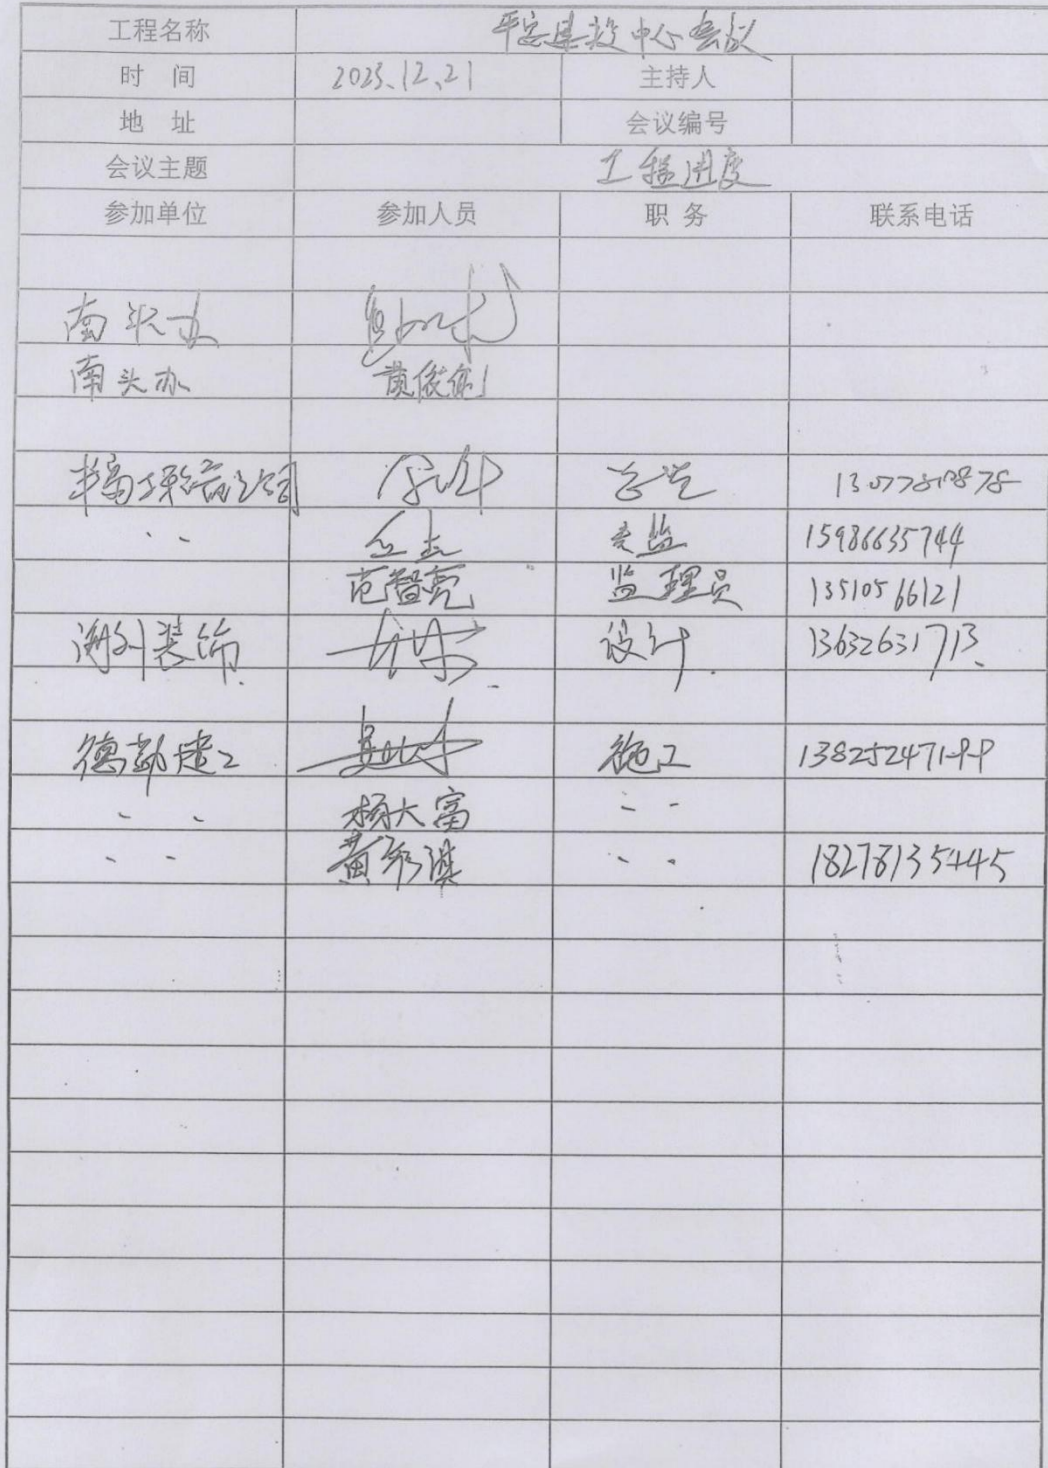 工程名称 平安建设中心会议
时 间 2023.12.21 主持人
地 址 会议编号
会议主题 工程进度
参加单位 参加人员 职 务 联系电话
南头办
南头办 黄俊
总监
〃 〃 监 15986635744
范智亮 监理员 13510566121
装饰 设计 13632631713
德勤建工 施工 13825247199
〃 〃 杨大富 〃 〃
〃 〃 黄彩淇 〃 〃 18278135445